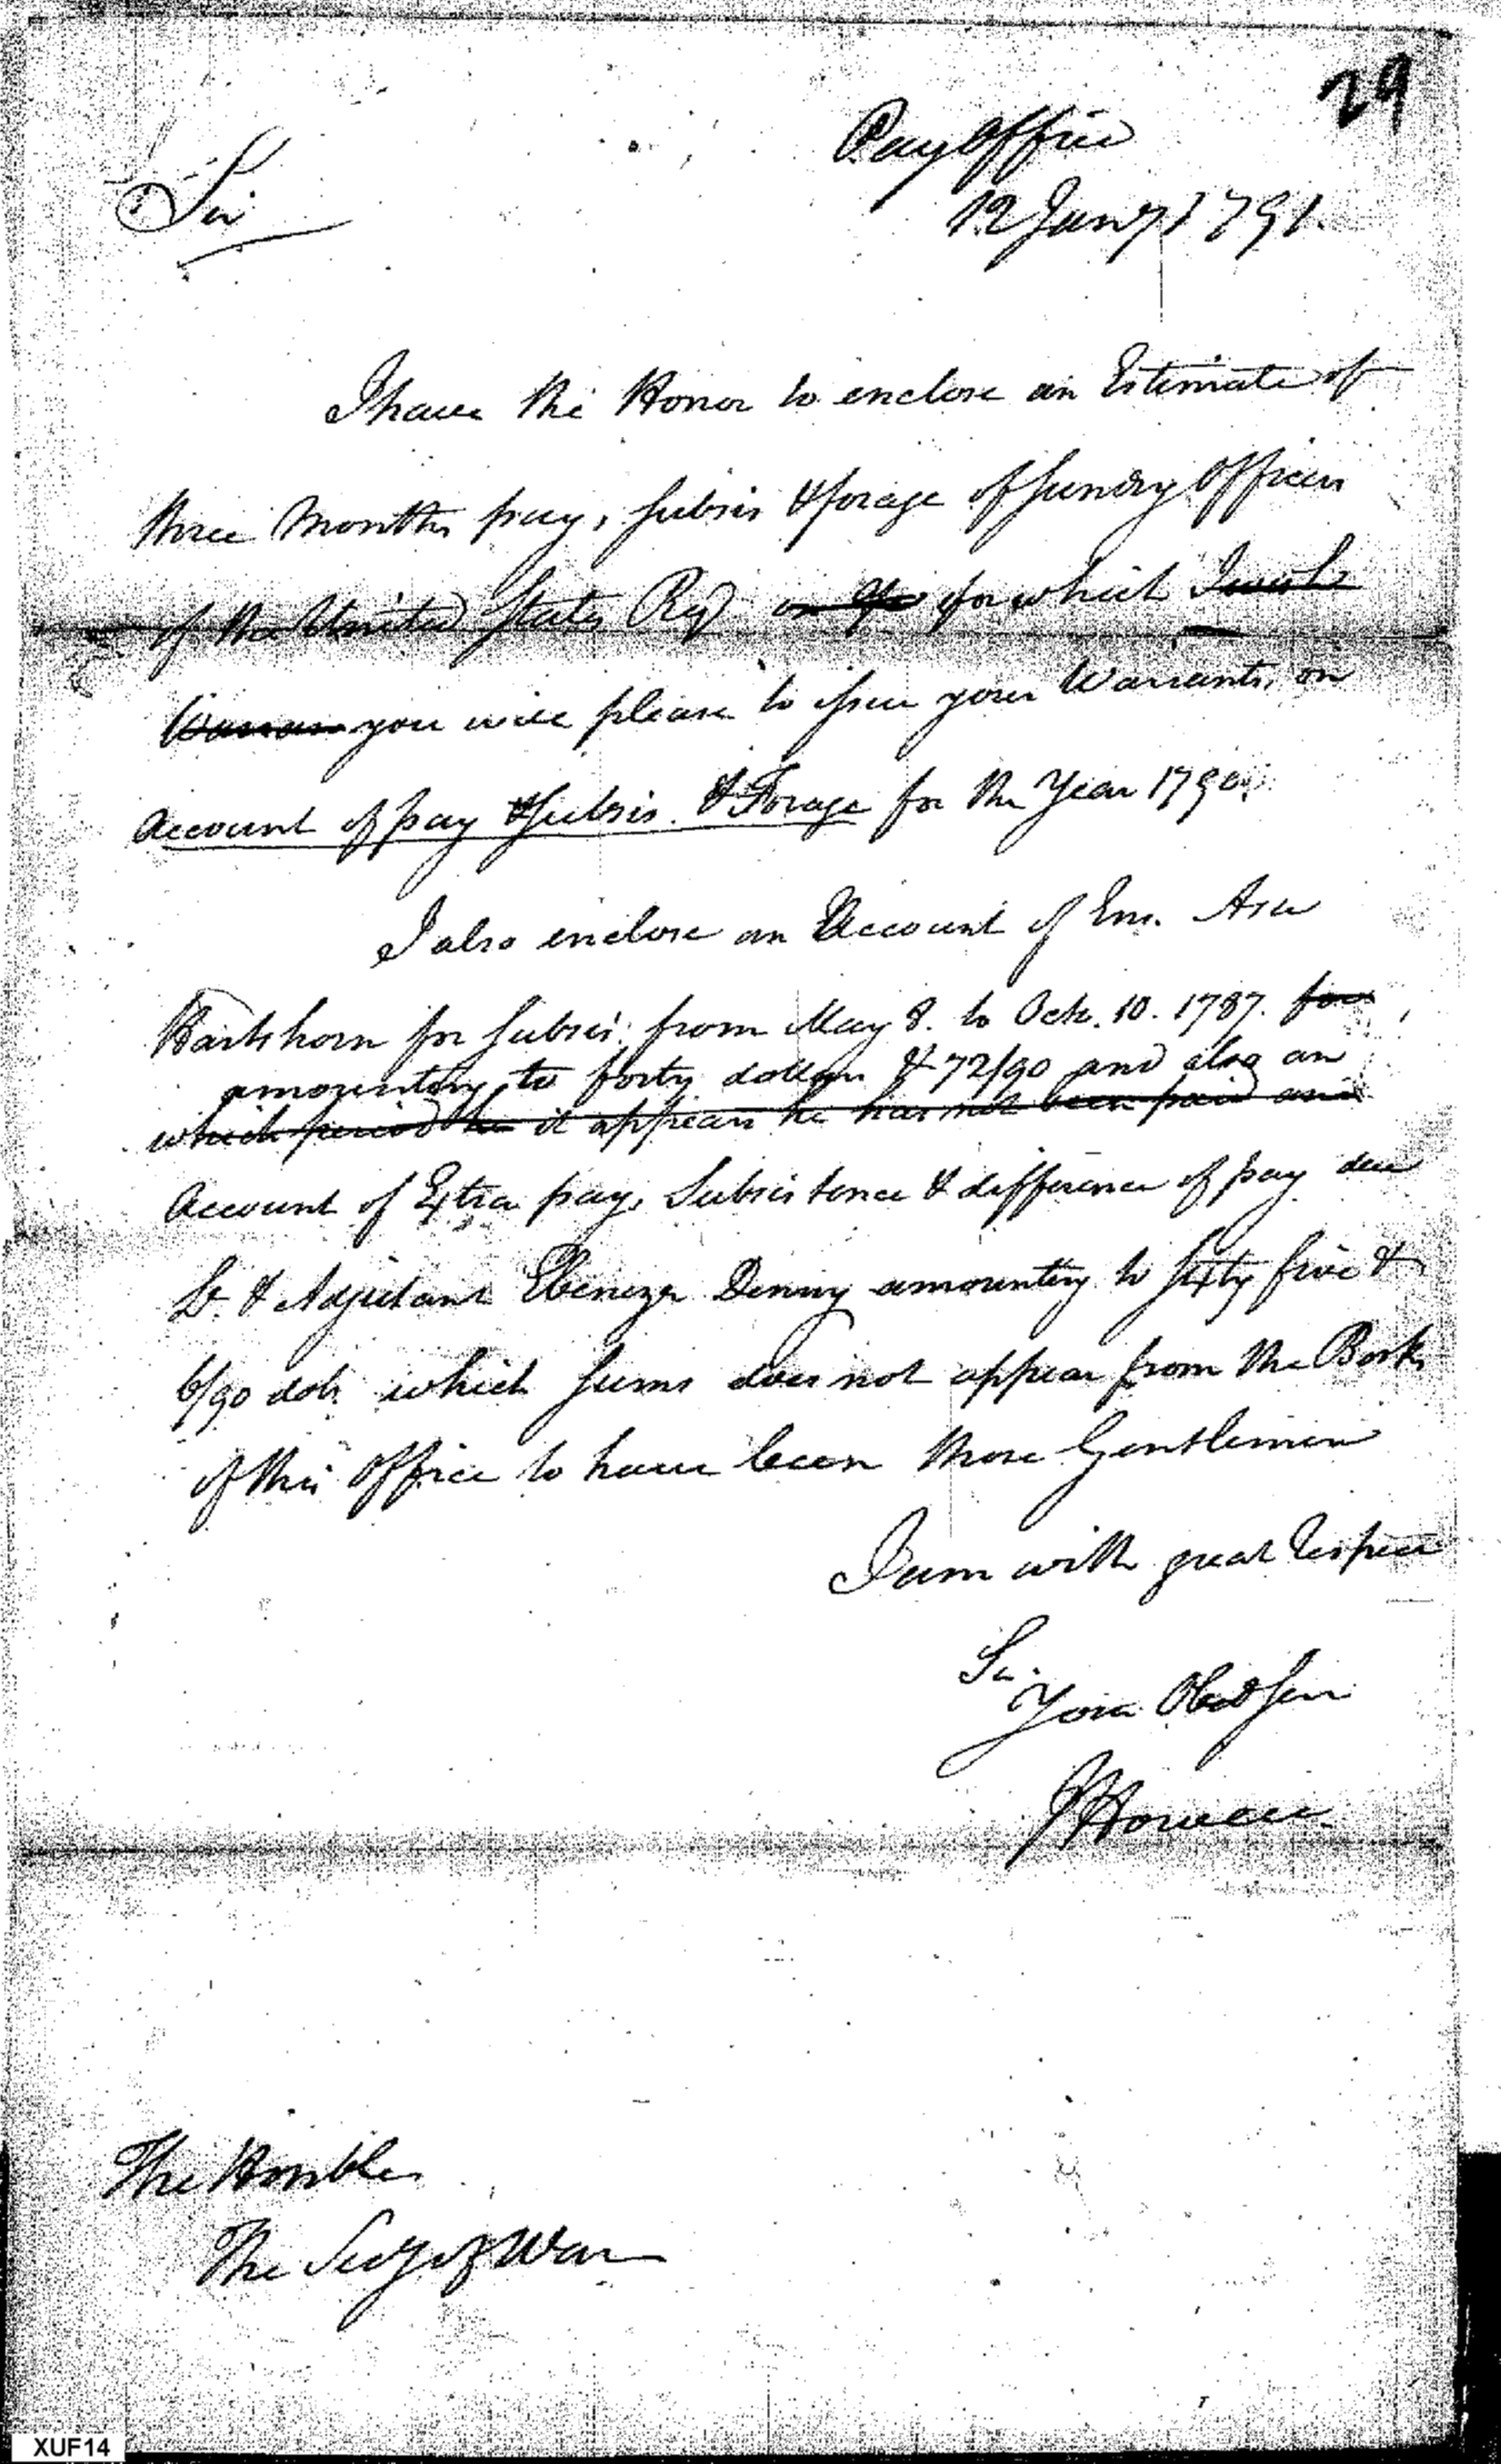 29
Pay Office
12 Jany 1791.
Sir
I have the Honor to enclose an Estimate of
three Months pay, subsis & forage of sundry Officers
of the United States Reg for which
you will please to issue your Warrants, on
Account of pay & Subsis. & Forage for the Year 1790.
I also enclose an Account of Ens. Asa
Hartshorn for subsis: from May 8. to Octr. 10. 1787. for
amounting to forty dollars & 72/90 and also an
which period he it appears he has not been paid and
Account of Extra pay, Subsistence & difference of pay due
Lt. & Adjutant Ebenezer Denny amounting to sixty five &
6/90 dols. which sums does not appear from the Books
of this Office to have been those Gentlemen
I am with great Respect
Sir.
Your Obed Serv
J Howell
The Honble
The Secy of War
XUF14